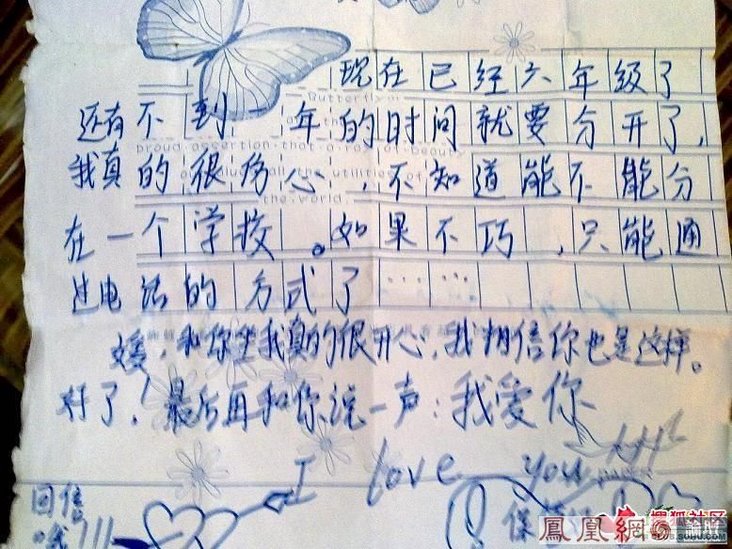 现在已经六年级了
还有不到一年的时间就要分开了,
我真的很伤心,不知道能不能分
在一个学校。如果不巧,只能通
过电话的方式了……
媛,和你坐我真的很开心,我相信你也是这样。
好了!最后再和你说一声:我爱你
I love you
回信
哦!!!
保
凤凰網 論壇
搜狐社区
SOHU.COM